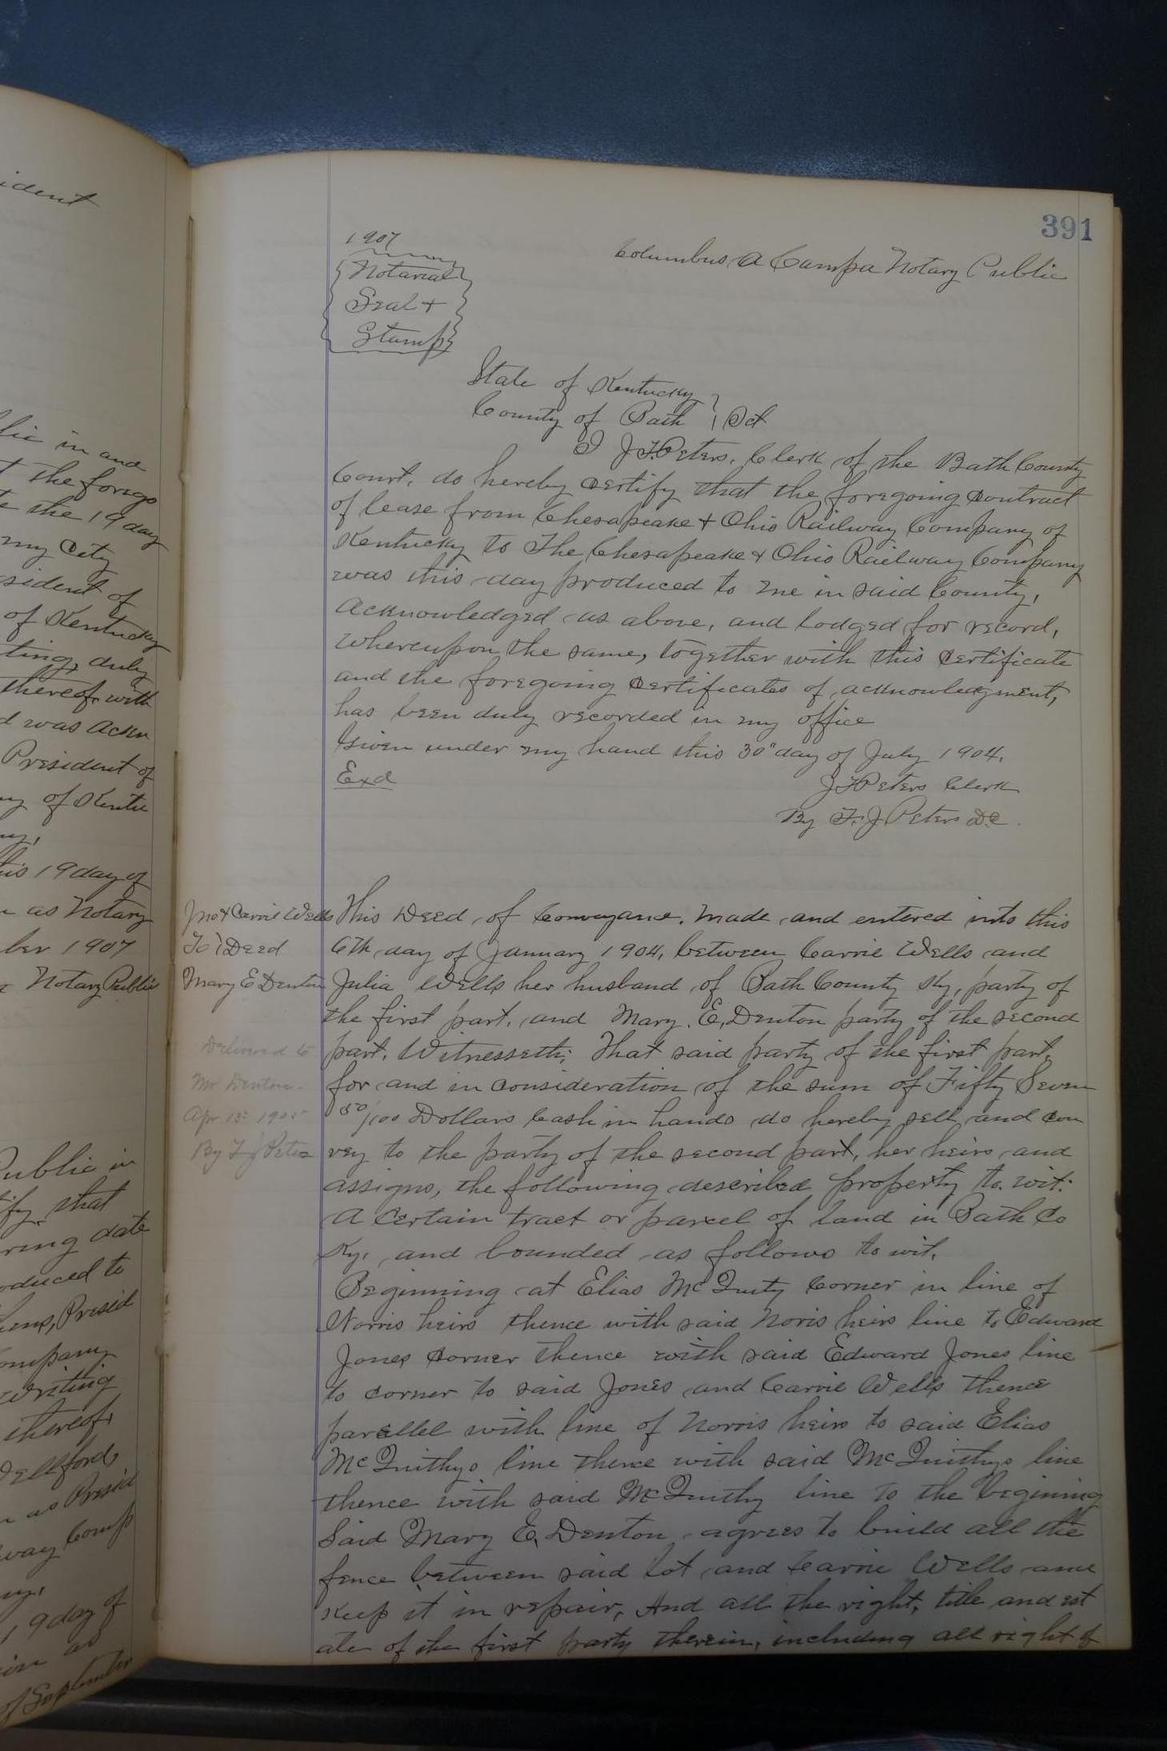 ident
lic in and
t the forego
te the 19 day
my City
sident of
of Kentucky
ting, duly
thereof with
d was ackn
President of
ny of Kentu
ny,
is 19 day of
as Notary
ber 1907
Notary Public
Public in
fy that
ring date
oduced to
hens, Presid
ompany
writing
thereof,
Wellford,
n as Presid
way Comp
ny,
19 day of
of September
391
1907
Notarial
Seal +
Stamp
Columbus A Campa Notary Public
State of Kentucky
County of Bath Sct
I J.T. Peters, Clerk of the Bath County
Court, do hereby certify that the foregoing contract
of lease from Chesapeake + Ohio Railway Company of
Kentucky to The Chesapeake + Ohio Railway Company
was this day produced to me in said County,
acknowledged as above, and lodged for record,
whereupon the same, together with this certificate
and the foregoing certificates of acknowledgment,
has been duly recorded in my office
Given under my hand this 30" day of July 1904.
Exd
J T Peters Clerk
By F. J. Peters D.C.
Jno + Carrie Wells
To Deed
Mary E Denton
Delivered to
Mr Denton
Apr 15 1905
By F J Peters
This Deed of Conveyance. Made and entered into this
6th day of January 1904, between Carrie Wells and
Julia Wells her husband of Bath County Ky, party of
the first part, and Mary. E. Denton party of the second
part. Witnesseth: That said party of the first part,
for and in consideration of the sum of Fifty Seven
50/100 Dollars Cash in hand do hereby sell and con
vey to the party of the second part, her heirs and
assigns, the following described property to wit:
A certain tract or parcel of land in Bath Co
Ky. and bounded as follows to wit.
Beginning at Elias McQuity Corner in line of
Norris heirs thence with said Noris heirs line to Edward
Jones corner thence with said Edward Jones line
to corner to said Jones and Carrie Wells thence
parellel with line of Norris heirs to said Elias
McQuithys line thence with said McQuithys line
thence with said McQuithy line to the beginning
Said Mary E. Denton agrees to build all the
fence between said lot and Carrie Wells and
keep it in repair, And all the right, title and est
ate of the first party therein, including all right of